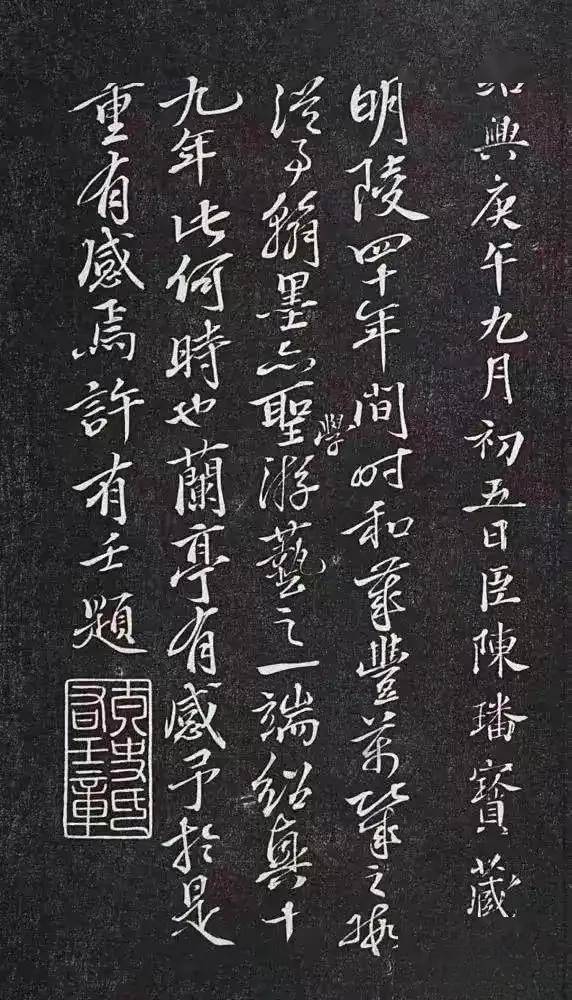 紹興庚午九月初五日臣陳璠寶藏
明陵四十年間时和歲豐萬幾之暇
從事翰墨亦聖學游藝之一端紹興十
九年此何時也蘭亭有感予於是
重有感焉許有壬題